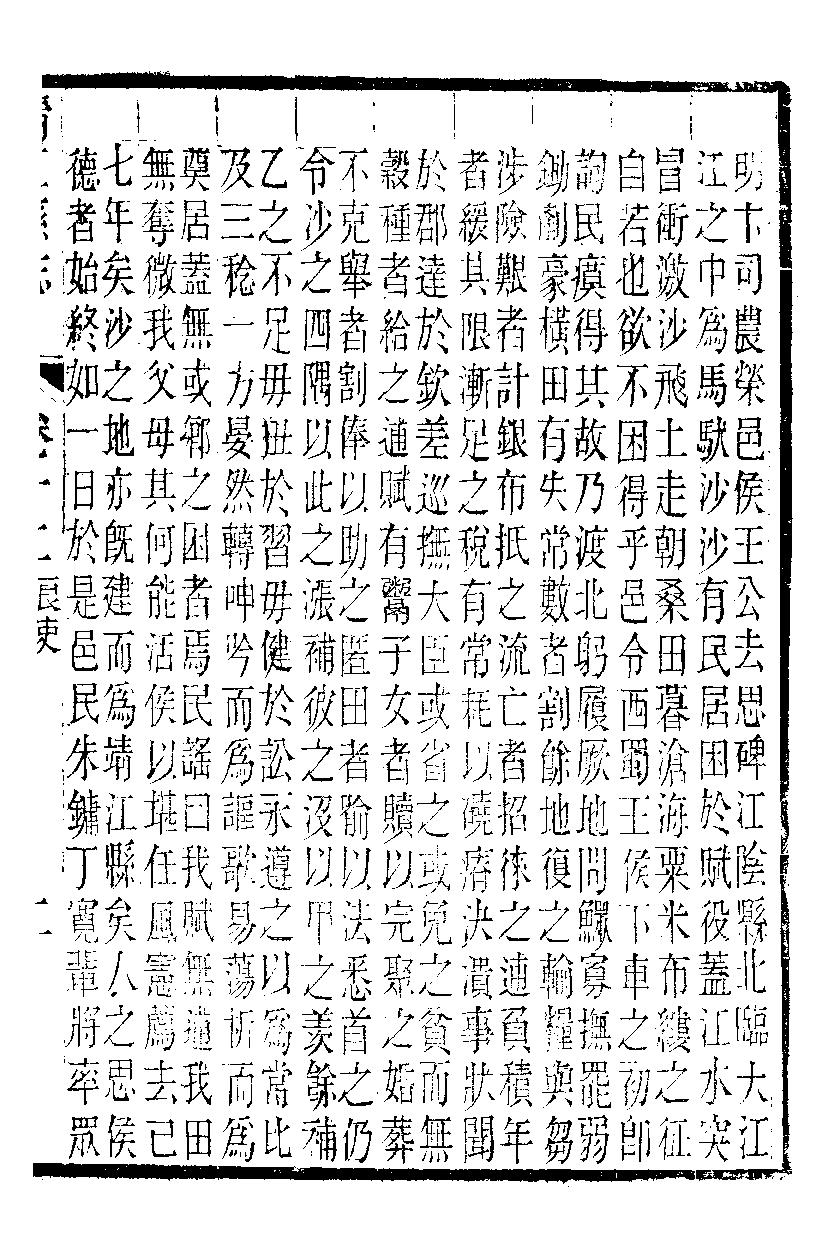 明卞司農榮邑侯王公去思碑江陰縣北臨大江
江之中為馬馱沙沙有民居困於賦役蓋江水突
冒衝激沙飛土走朝桑田暮滄海粟米布縷之征
自若也欲不困得乎邑令西蜀王侯下車之初卽
詢民瘼得其故乃渡北躬履厥地問鰥寡撫罷弱
鋤劘豪橫田有失常數者割餘地復之輸糧與芻
涉險艱者計銀布抵之流亡者招徠之逋負積年
者緩其限漸足之稅有常耗以磽瘠決潰事狀聞
於郡達於欽差巡撫大臣或省之或免之貧而無
穀種者給之逋賦有鬻子女者贖以完聚之婚葬
不克舉者割俸以助之匿田者諭以法悉首之仍
令沙之四隅以此之漲補彼之沒以甲之羨餘補
乙之不足毋狃於習毋健於訟永遵之以為常比
及三稔一方晏然轉呻吟而為謳歌易蕩析而為
奠居蓋無或鄉之困者焉民謠曰我賦無逋我田
無奪微我父母其何能活侯以堪任風憲薦去已
七年矣沙之地亦既建而為靖江縣矣人之思侯
德者始終如一日於是邑民朱鏞丁寬輩將率眾
靖江縣志
卷十二
良吏
二